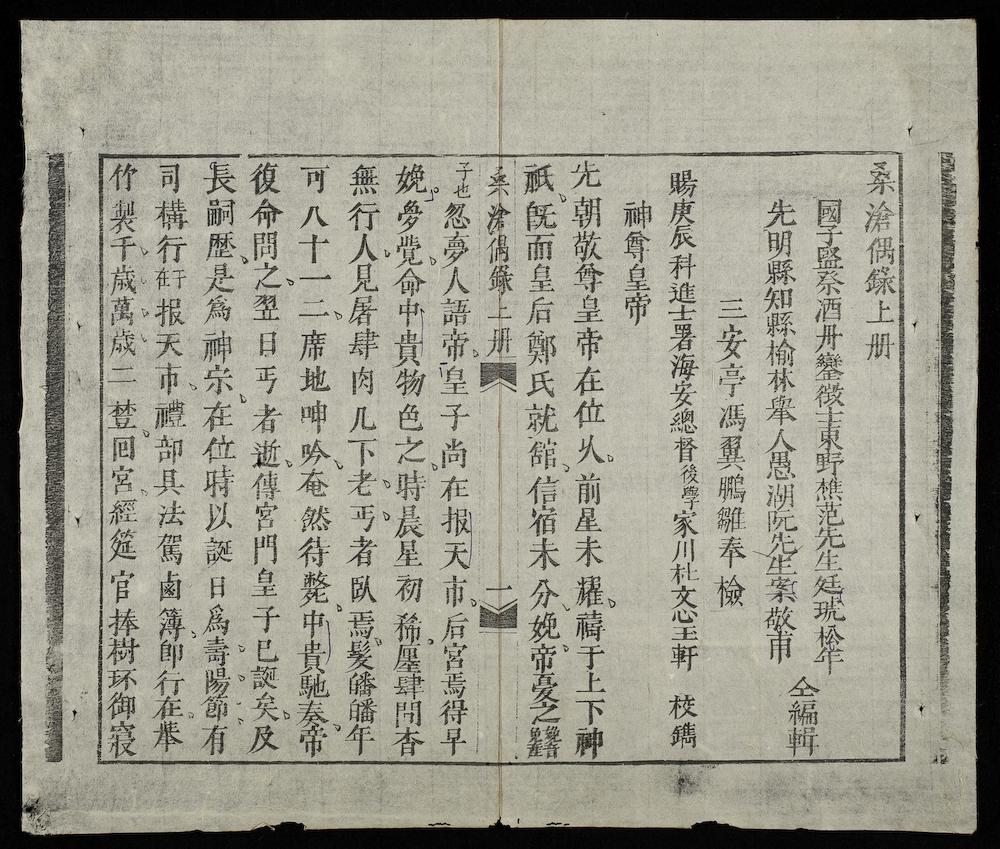 桑滄偶錄上册
國子監祭酒丹鑾徵士東野樵范先生廷琥松年
先明縣知縣榆林舉人愚湖阮先生案敬甫
仝編輯
三安亭馮翼鵬雛奉檢
賜庚辰科進士署海安總督後學家川杜文心王軒 校鐫
神尊皇帝
先朝敬尊皇帝在位乆前星未耀禱于上下神
祇旣而皇后鄭氏就舘信宿未分娩帝憂之娩音免産
桑滄偶錄上册 一
子也忽夢人語帝皇子尚在报天市后宮焉得早
娩夢覺命中貴物色之時晨星初稀廛肆閴杳
無行人見屠肆肉几下老丐者臥焉髮皤皤年
可八十一二席地呻吟奄然待斃中貴馳奏帝
復命問之翌日丐者逝傳宮門皇子已誕矣及
長嗣歷是爲神宗在位時以誕日爲壽陽節有
司構行在于报天市禮部具法駕鹵簿卽行在擧
竹製千歲萬歲二䓁回宮經筵官捧樹环御寢